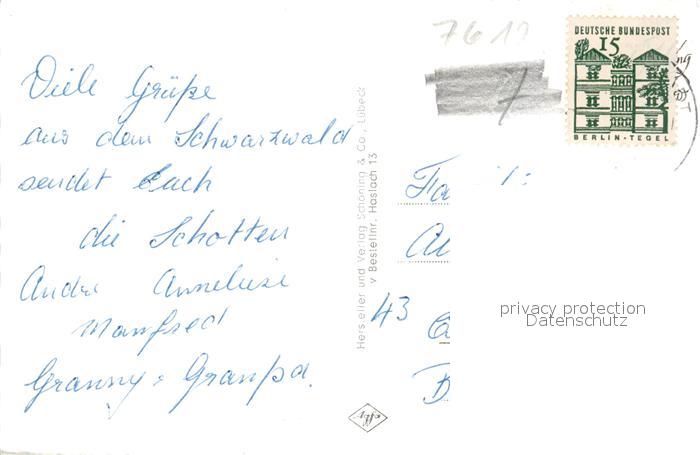 Viele Grüße
aus dem Schwarzwald
sendet Euch
die Schotten
André Anneliese
Manfred
Granny + Granpa.
Hersteller und Verlag Schöning & Co., Lübeck
v Bestellnr. Haslach 13
7612
7
DEUTSCHE BUNDESPOST
15
BERLIN-TEGEL
Fa
43
privacy protection
Datenschutz